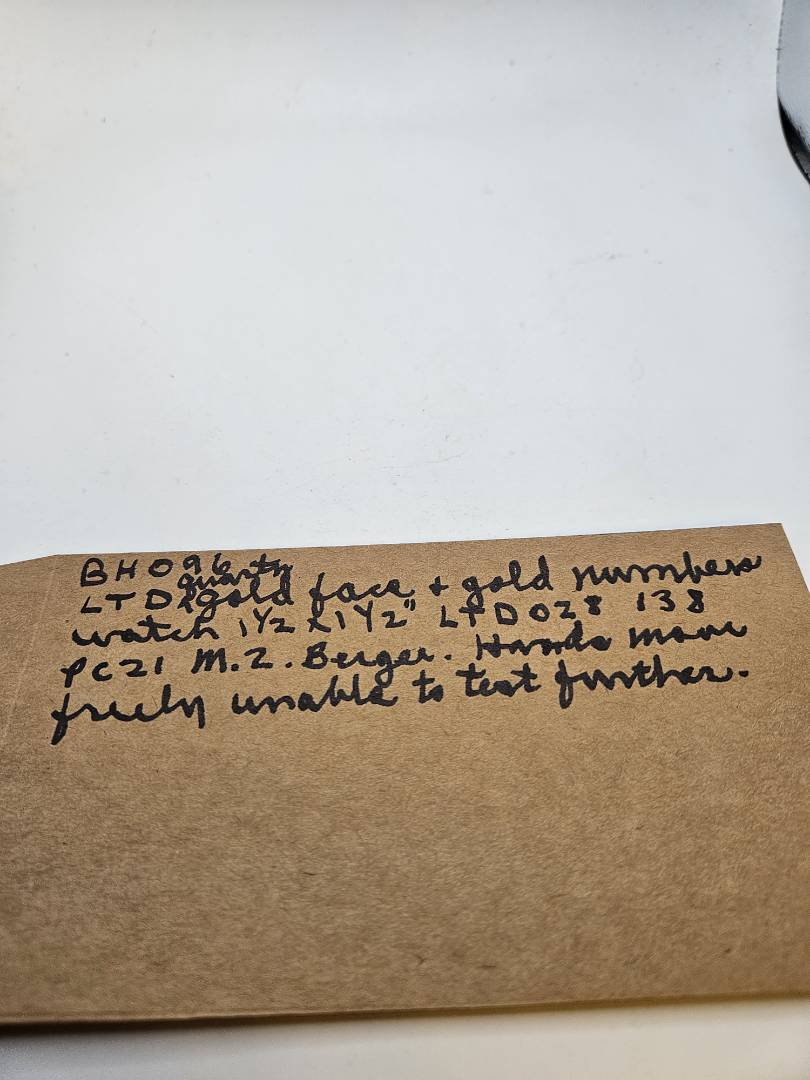 BH096
quartz
LTD gold face + gold numbers
watch 1 1/2 x 1 1/2" LTD 028 138
PC21 M.Z. Berger. Hands move
freely unable to test further.